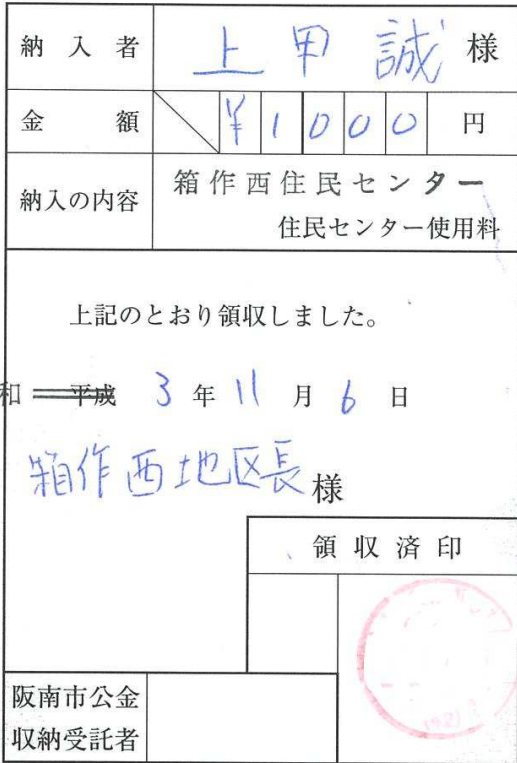 納入者 上甲 誠 様
金額 ¥1000 円
納入の内容 箱作西住民センター
住民センター使用料
上記のとおり領収しました。
和 平成 3年11月6日
箱作西地区長様
領収済印
阪南市公金
収納受託者